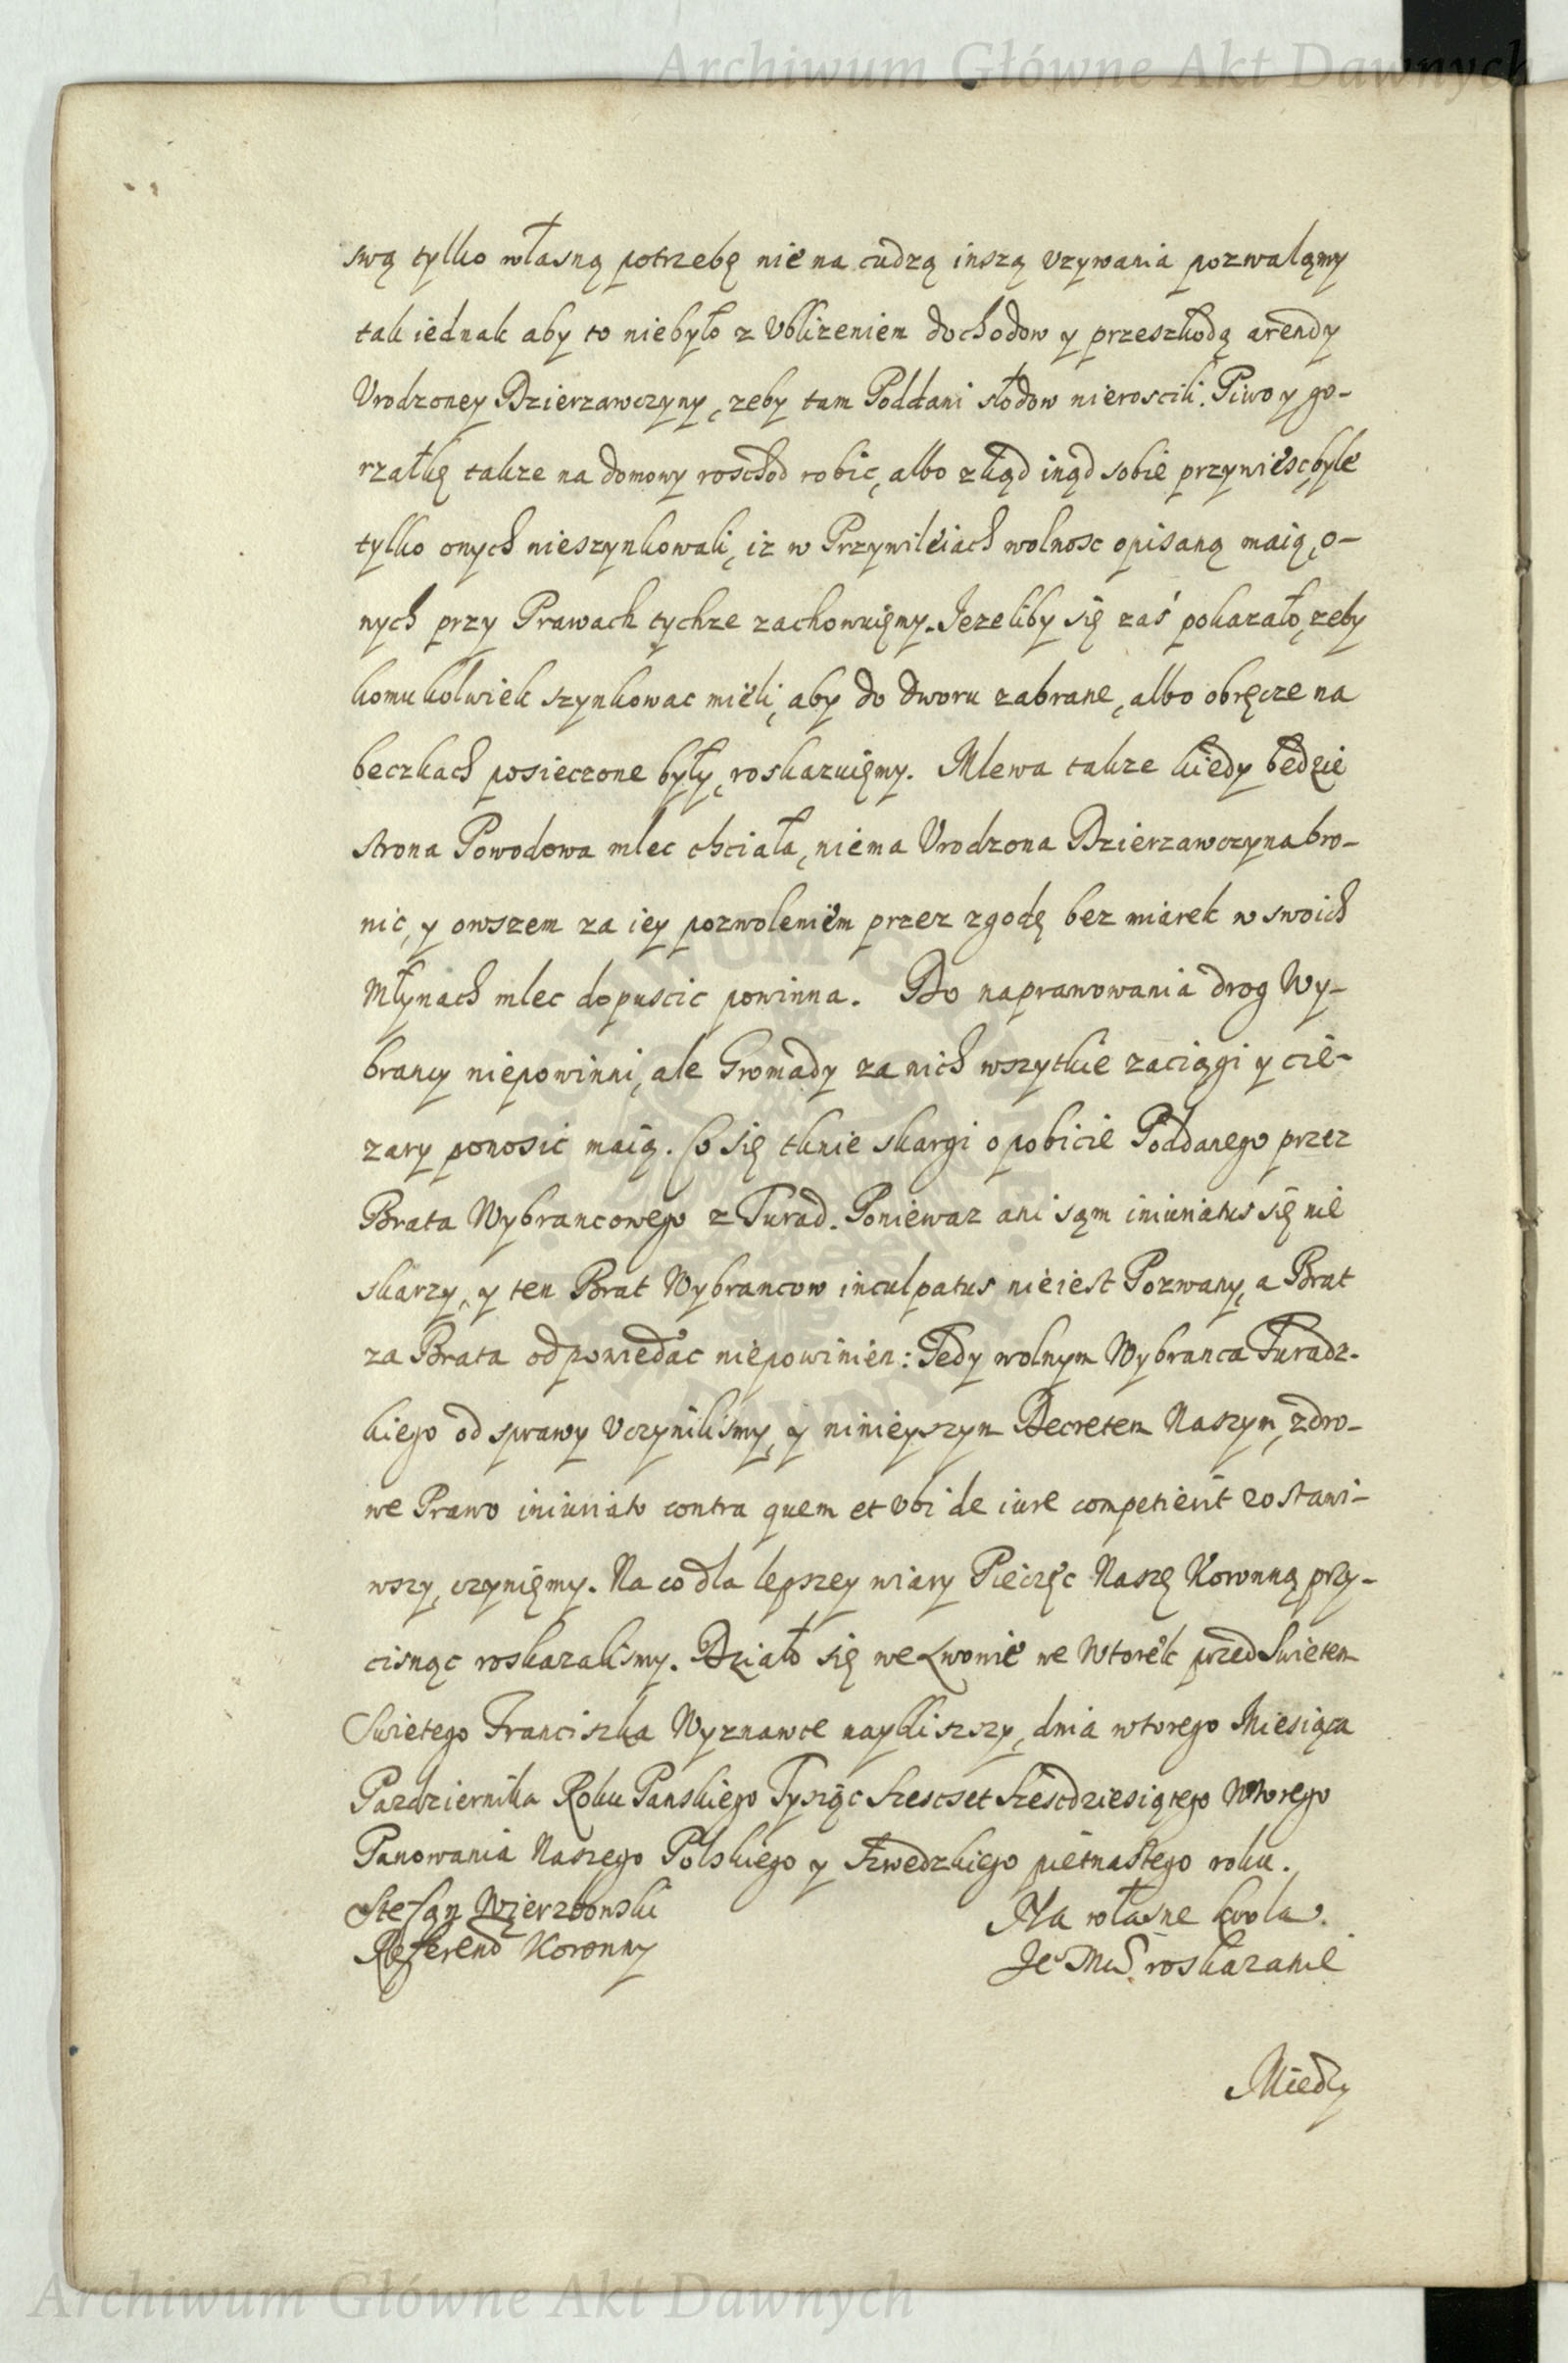 Archiwum Główne Akt Dawnych
swą tylko własną potrzebę nie na cudzą inszą vzywania pozwaląmy
tak iednak aby to niebyło z Vbliżeniem dochodow y przeszkodą arendy
Vrodzoney Dzierzawczyny, zeby tam Poddani słodow nieroscili. Piwo y go-
rzałkę takze na domowy roschod robic, albo zkąd inąd sobie przywiesc, byle
tylko onych nieszynkowali, iz w Przywileiach wolnosc opisaną maią, o-
nych przy Prawach tychze zachowuięmy. Jezeliby się zaś pokazało, zeby
komukolwiek szynkowac mieli, aby do dworu zabrane, albo obręcze na
beczkach posieczone były, roskazuięmy. Mlewa takze kiedy będzie
strona Powodowa mlec chciała, niema Vrodzona Dzierzawczyna bro-
nic, y owszem za iey pozwoleniem przez zgodę bez miarek w swoich
Młynach mlec dopuscic powinna. Do naprawowania drog Wy-
brancy niepowinni, ale Gromady za nich wszytkie zaciągi y cię-
zary ponosic maią. Co się tknie skargi o pobicie Poddanego przez
Brata Wybrancowego z Turad. Poniewaz ani sąm iniuriatus się nie
skarzy, y ten Brat Wybrancow inculpatus nieiest Pozwany, a Brat
za Brata odpowiedac niepowinien: Tedy wolnym Wybranca Turadz-
kiego od sprawy Vczynilismy, y ninieyszym Decretem Naszym, zdro-
we Prawo iniuriato contra quem et vbi de iure competierit zostawi-
wszy, czynięmy. Na co dla lepszey wiary Pieczęc Naszę Koronną przy-
cisnąc roskazalismy. Działo się we Lwowie we Wtorek przed Swietem
Swietego Franciszka Wyznawce nayblizszy, dnia wtorego Miesiąca
Pazdziernika Roku Panskiego Tysiąc Szescset Szescdziesiątego Wtorego
Panowania Naszego Polskiego y Szwedzkiego piętnastego roku.
Stefan Wierzbowski
Referend Koronny
Na własne krola
Je Mści roskazanie
Miedzy
Archiwum Główne Akt Dawnych